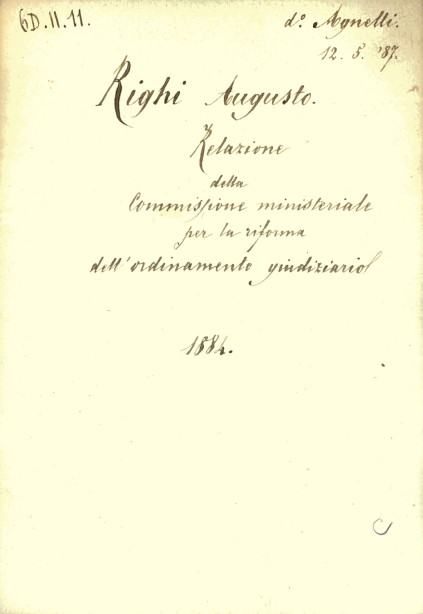 6D.II.11.
d.º Agnelli.
12. 5. '87.
Righi Augusto.
Relazione
della
Commissione ministeriale
per la riforma
dell'ordinamento giudiziario
1884.